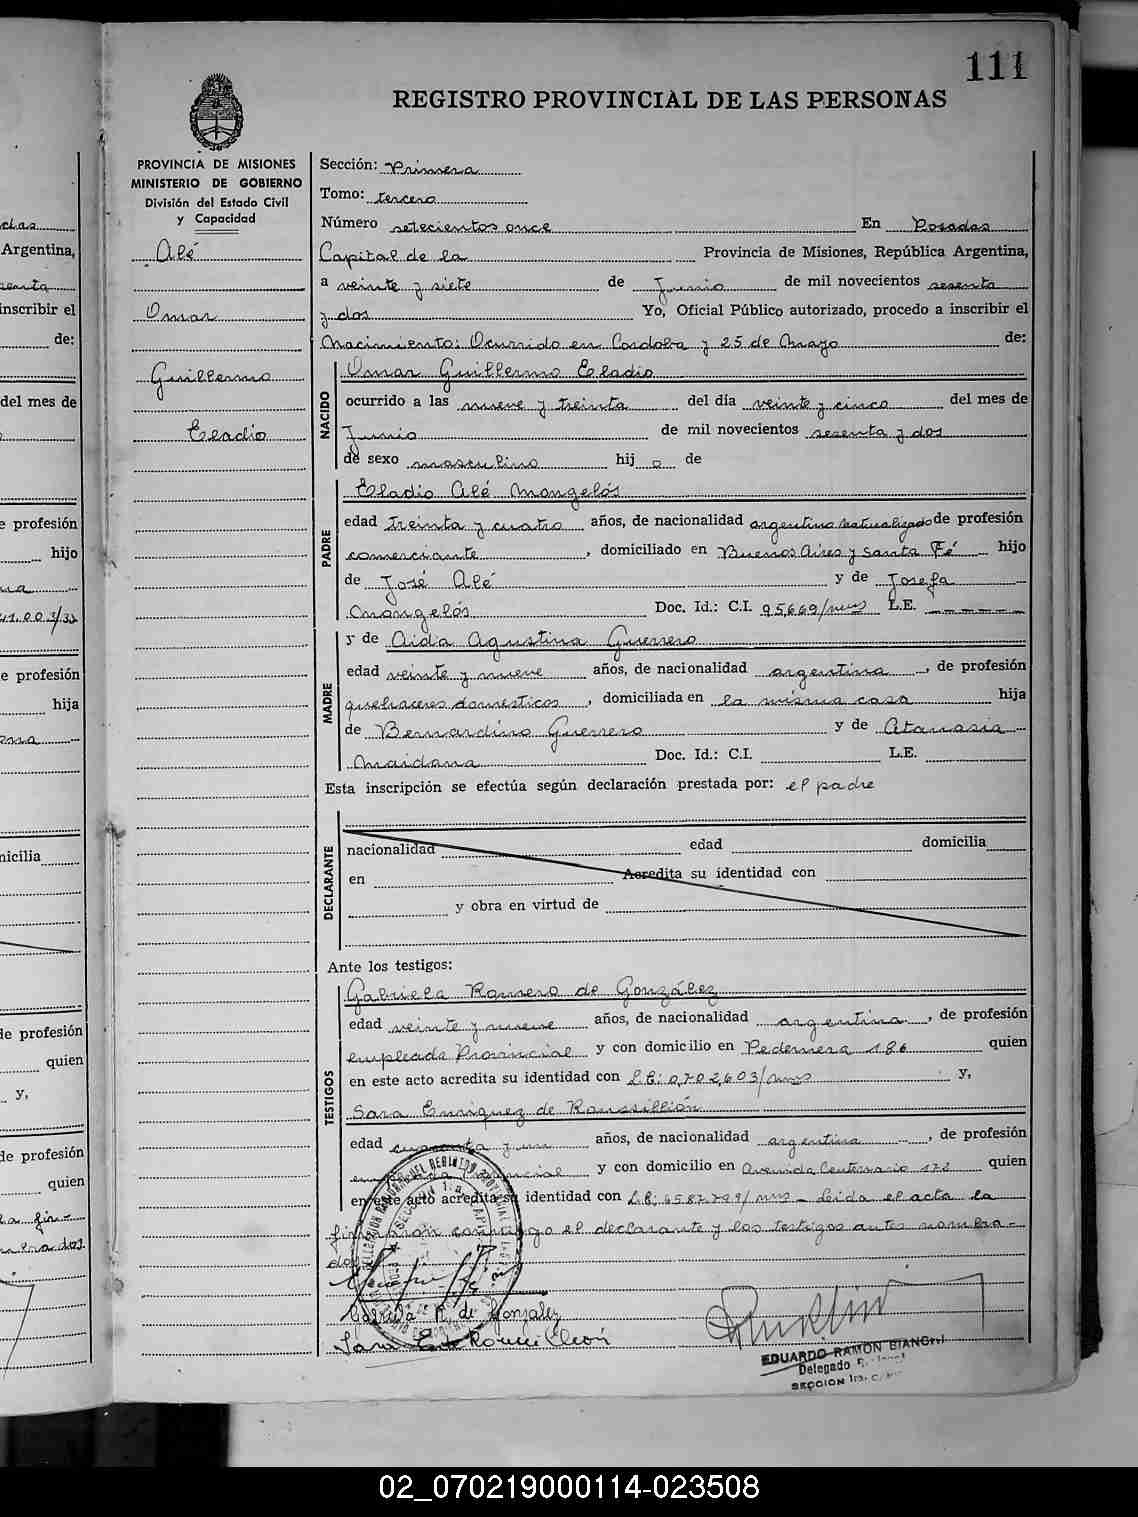 111
REGISTRO PROVINCIAL DE LAS PERSONAS
PROVINCIA DE MISIONES
MINISTERIO DE GOBIERNO
División del Estado Civil
y Capacidad
Alé
Omar
Guillermo
Eladio
Sección: Primera
Tomo: tercero
Número setecientos once En Posadas
Capital de la Provincia de Misiones, República Argentina,
a veinte y siete de Junio de mil novecientos sesenta
y dos Yo, Oficial Público autorizado, procedo a inscribir el
Nacimiento: Ocurrido en Cordoba y 25 de Mayo de:
NACIDO
Omar Guillermo Eladio
ocurrido a las nueve y treinta del día veinte y cinco del mes de
Junio de mil novecientos sesenta y dos
de sexo masculino hij o de
PADRE
Eladio Alé Mongelós
edad treinta y cuatro años, de nacionalidad argentino naturalizado de profesión
comerciante, domiciliado en Buenos Aires y Santa Fé hijo
de José Alé y de Josefa
Mongelós Doc. Id.: C.I. 95,669/mns L.E.
MADRE
y de Aida Agustina Guerrero
edad veinte y nueve años, de nacionalidad argentina, de profesión
quehaceres domesticos, domiciliada en la misma casa hija
de Bernardino Guerrero y de Atanasia
Maidana Doc. Id.: C.I. L.E.
Esta inscripción se efectúa según declaración prestada por: el padre
DECLARANTE
nacionalidad edad domicilia
en Acredita su identidad con
y obra en virtud de
Ante los testigos:
TESTIGOS
Gabriela Romero de González
edad veinte y nueve años, de nacionalidad argentina, de profesión
empleada Provincial y con domicilio en Pedernera 186 quien
en este acto acredita su identidad con L.C: 0,702,603/mns y,
Sara Enriquez de Roussillión
edad cuarenta y un años, de nacionalidad argentina, de profesión
y con domicilio en Avenida Centenario 172 quien
en este acto acredita su identidad con L.C: 6587.799/mns - Leida el acta la
firmaron conmigo el declarante y los testigos antes nombra-
dos
Gabriela R. de Gonzalez
EDUARDO RAMON BIANCHI
Delegado
SECCION
02_070219000114-023508